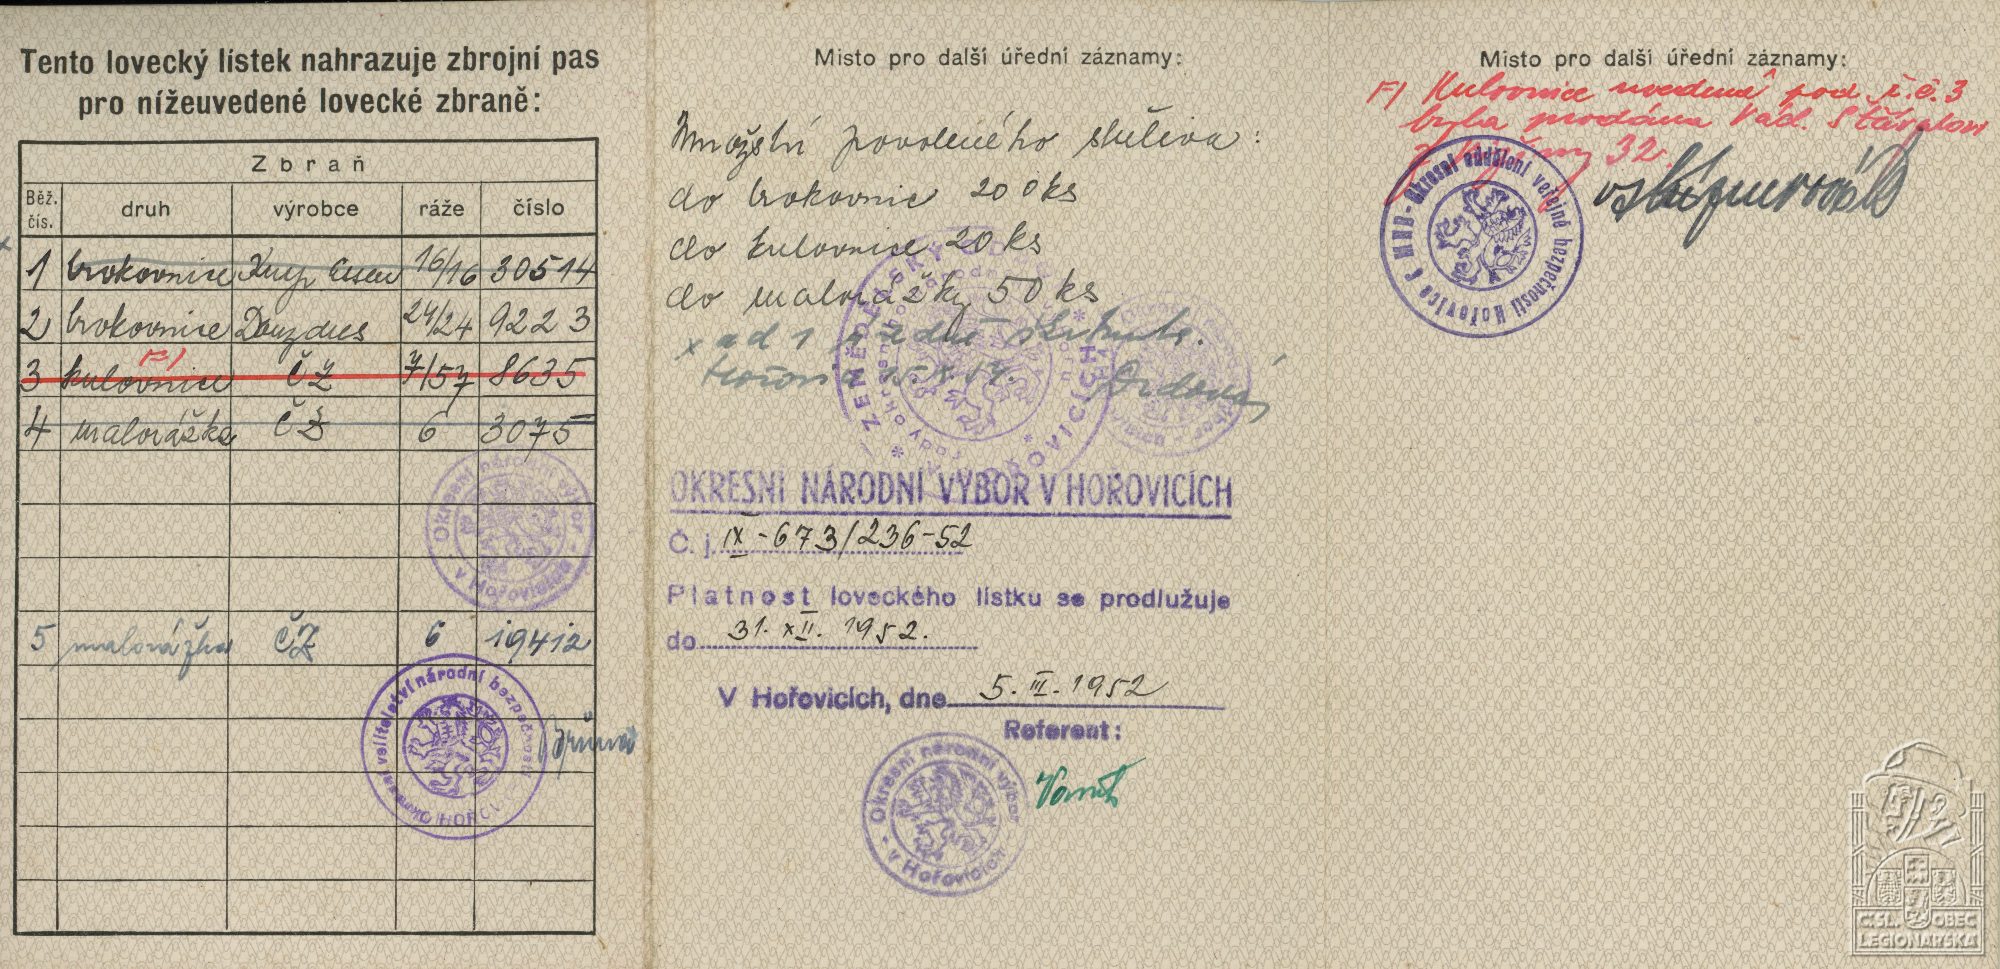 Tento lovecký lístek nahrazuje zbrojní pas
pro nížeuvedené lovecké zbraně:
Zbraň
Běž. čís. druh výrobce ráže číslo
1 brokovnice 16/16 30514
2 brokovnice 24/24 9223
3 kulovnice ČZ 7/57 8635
4 malorážka ČZ 6 3075
Okresní národní výbor
v Hořovicích
5 malorážka ČZ 6 19412
velitelství národní bezpečnosti
Místo pro další úřední záznamy:
Množství povoleného střeliva:
do brokovnice 200 ks
do kulovnice 20 ks
do malorážky 50 ks
x ad 1
OKRESNÍ NÁRODNÍ VÝBOR V HOŘOVICÍCH
Č. j. IX-673/236-52
Platnost loveckého lístku se prodlužuje
do 31. XII. 1952.
V Hořovicích, dne 5. III. 1952
Referent:
Okresní národní výbor
v Hořovicích
Místo pro další úřední záznamy:
F) Kulovnice uvedená pod ř.č. 3
byla prodána
32.
Okresní oddělení veřejné bezpečnosti Hořovice
ČSL. OBEC
LEGIONÁŘSKÁ